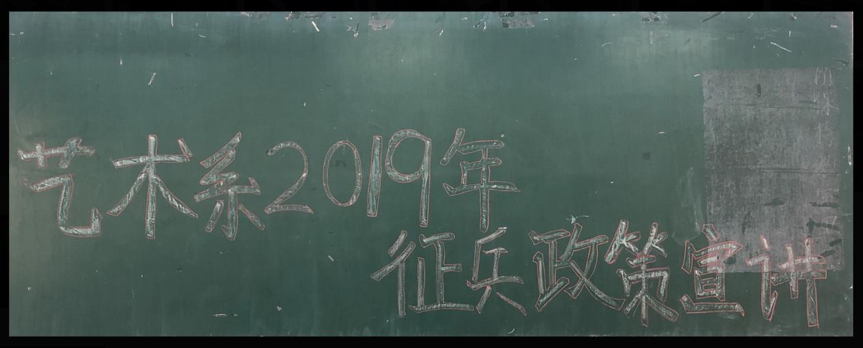 艺术系2019年
征兵政策宣讲